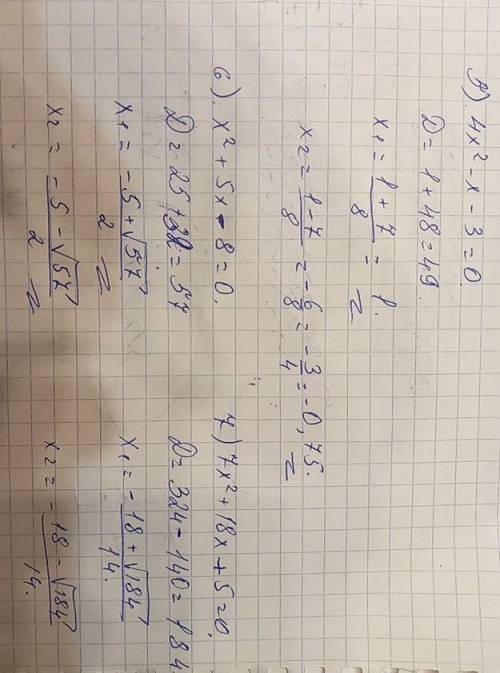 5). 4x² - x - 3 = 0.
D = 1 + 48 = 49.
x₁ = (1 + 7)/8 = 1.
x₂ = (1 - 7)/8 = -6/8 = -3/4 = -0,75.
6). x² + 5x - 8 = 0.
D = 25 + 32 = 57
x₁ = (-5 + √57)/2
x₂ = (-5 - √57)/2
7) 7x² + 18x + 5 = 0.
D = 324 - 140 = 184.
x₁ = (-18 + √184)/14.
x₂ = (-18 - √184)/14.